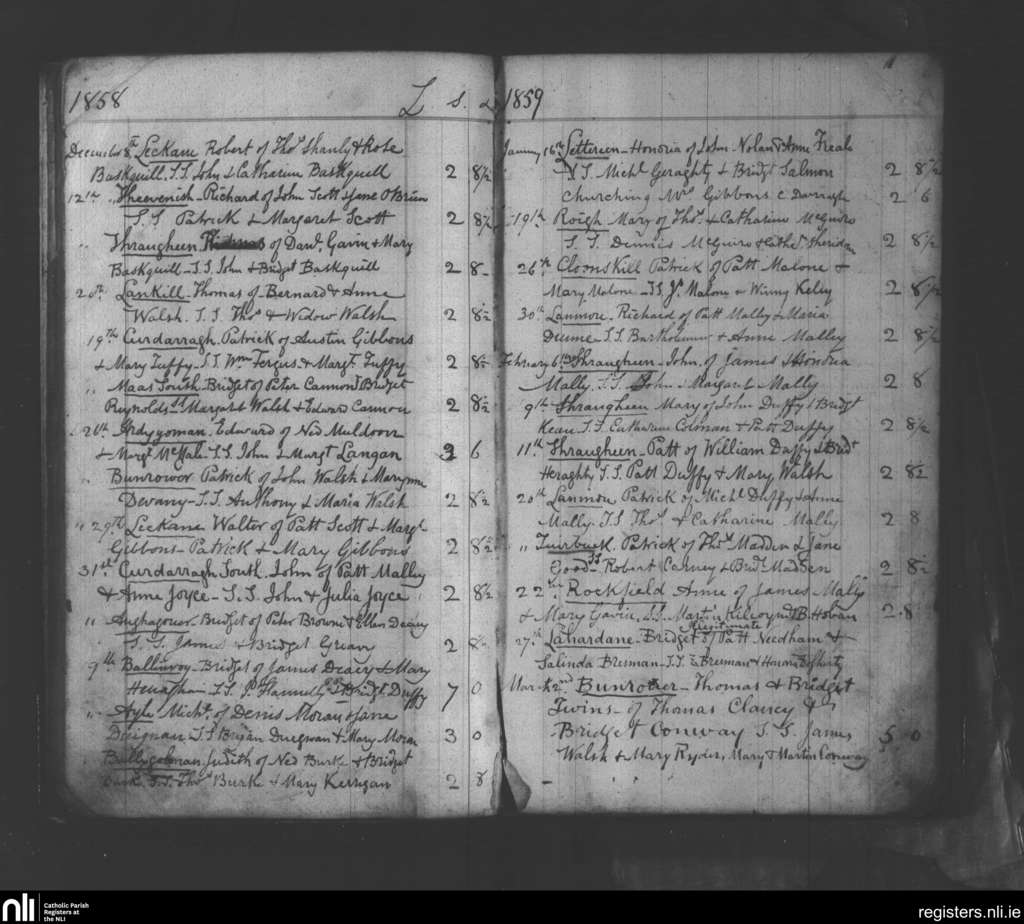 1858 L s. d
December 8th Leckane Robert of Thos Shanly & Rose
Baskquill. S.S. John & Catharine Baskquill 2 8½
12th " Threevenish - Richard of John Scott & Jane O'Brien
S.S Patrick & Margaret Scott 2 8½
" Thraugheen of Dand. Gavin & Mary
Baskquill - S.S John & Bridget Baskquill 2 8
20th Lankill - Thomas of Bernard & Anne
Walsh. S.S. Thos & Widow Walsh 2 8½
19th Curdarragh. Patrick of Austin Gibbons
& Mary Tuffy - S.S Wm Fergus & Margt. Tuffy 2 8½
" Maas South - Bridget of Peter Cannon & Bridget
Reynolds SS Margaret Walsh & Edward Cannon 2 8½
26th Ardygoman. Edward of Ned Muldoon
& Margt McHale - S.S John & Margt Langan 6
" Bunrower Patrick of John Walsh & Maryanne
Devany - S.S Anthony & Maria Walsh 2 8½
" 29th Leckane Walter of Patt Scott & Margt
Gibbons - Patrick & Mary Gibbons 2 8½
31st Curdarragh South. John of Patt Malley
& Anne Joyce - S.S John & Julia Joyce 2 8½
" Aughagower. Bridget of Peter Browne & Ellen Deacy
S.S. James & Bridget 2 8
9th Ballinvoy - Bridget of James Deacy & Mary
Henaghan S.S. P. & Bridgt. Duffy 7 0
" Ayle Michl. of Denis Moran & Jane
Duignan - S.S Bryan Duignan & Mary Moran 3 0
Judith of Ned Burke & Bridget
S.S. Thos Burke & Mary Kerrigan 2 8
1859
January 16th Lettereen - Honoria of John Nolan & Anne Freale
S.S. Michl Geraghty & Bridgt Salmon 2 8½
Churching Mrs Gibbons C Darragh 2 6
19th Rough Mary of Thos. & Catharine McGuire
S.S. Dennis McGuire & Cathe. Sheridan 2 8½
26th Cloonskill Patrick of Patt Malone &
Mary Malone - SS Js. Malone & Winny Kelly 2 8½
30th Lanmore. Richard of Patt Mally & Maria
S.S Bartholemew & Anne Malley 2 8½
February 6th Thraugheen - John. of James & Honoria
Mally. S.S. John & Margaret Mally 2 8
9th Thraugheen Mary of John Duffy & Bridgt
Kean S.S Catharine Colman & Patt Duffy 2 8½
11th Thraugheen - Patt of William Duffy & Bridt
Heraghty. S.S. Patt Duffy & Mary Walsh 2 8½
20th Lanmore Patrick of Michl Duffy & Anne
Mally. S.S Thos. & Catharine Mally 2 8
" Patrick of Thos Madden & Jane
Good SS Robert Canney & Brdt. Madden 2 8½
22nd Rockfield Anne of James Mally
& Mary Gavin. S.S. Martin Kilcoyne & B. Hoban 2 8
Illegitimate
27th Lahardane - Bridget of Patt Needham &
Salinda Brennan - S.S. Brennan & Honoria
March 2nd Bunrower - Thomas & Bridget
Twins - of Thomas Clancy &
Bridget Conway S.S. James 5 0
Walsh & Mary Ryder, Mary & Martin Conway
nli
Catholic Parish
Registers at
the NLI
registers.nli.ie